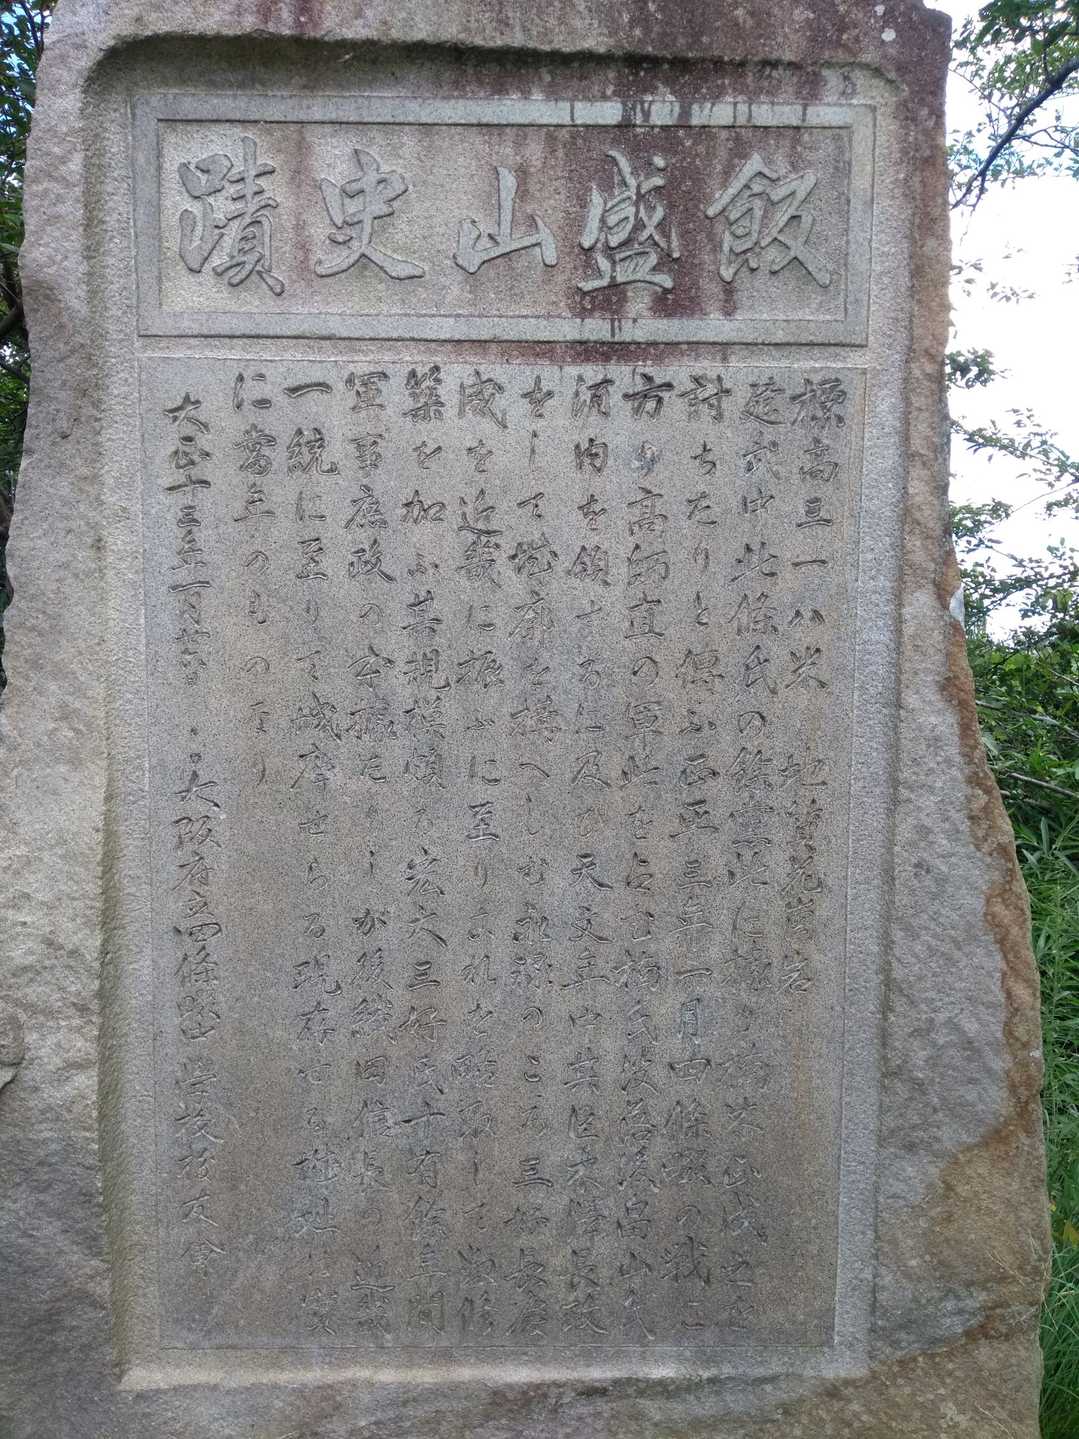 飯盛山史蹟
標高三一八米 地質花崗岩
延武中北條氏の餘黨此に據り楠木正成之を
討ちたりと傳ふ正平三年一月四條畷の戰に
方り高師直の軍此を 楠氏没落後畠山氏
河内を領するに及び天文年中其臣木澤長政
をして城廓を構へしむ永祿のころ三好長慶
威を近畿に振ふに至りこれを 取して 修
築を加ふ其規模頗る宏大三好氏十有餘年間
軍事庶政の本據たりしが後織田信長の近畿
一統に至りて城廃せらる現存せる礎址は
に當年のものなり
大正十三年一月 大阪府四條畷中學校校友會